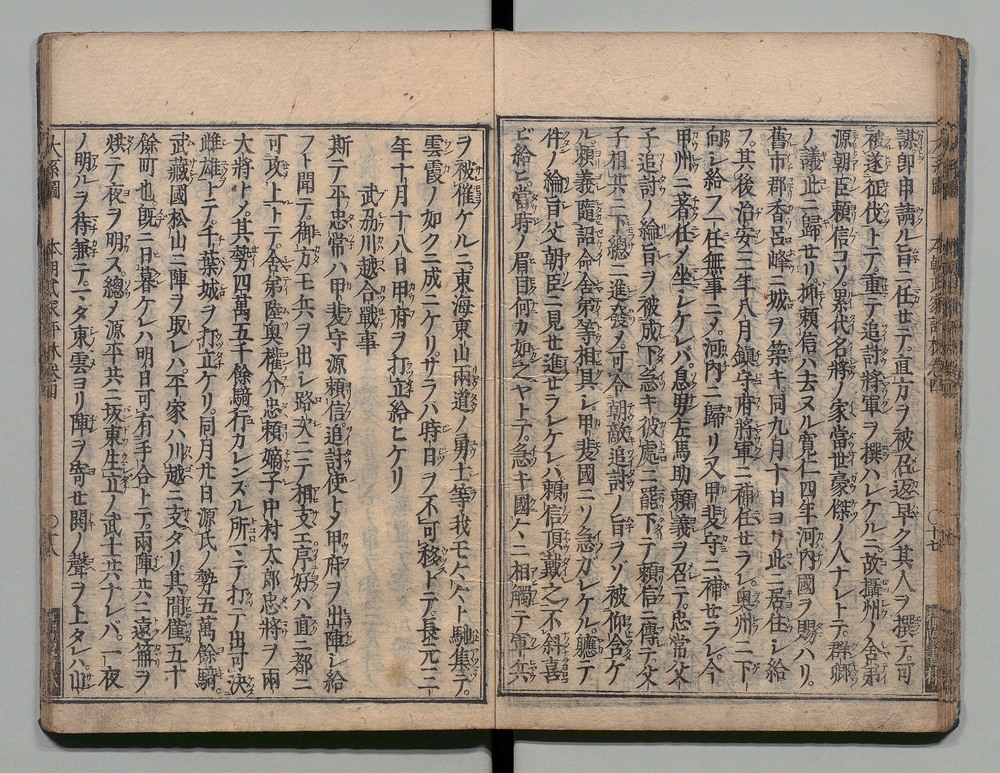 謀即申請ル旨ニ任セテ直方ヲ被召返早ク其人ヲ撰テ可
被遂征伐トテ重テ追討將軍ヲ撰ハレケルニ故攝州ノ舍弟
源朝臣頼信コソ累代名將ノ家當世豪傑ノ人ナレトテ群卿
ノ議此ニ歸セリ抑頼信ハ去ヌル寛仁四年河内國ヲ賜ハリ
舊市郡香呂峰ニ城ヲ築キ同九月十日ヨリ此ニ居住シ給
フ其後治安三年八月鎮守府將軍ニ補任セラレ奥州ニ下
向シ給フ任無事ニメ河内ニ歸リ又甲斐守ニ補セラレ今
甲州ニ著任メ坐シケレバ息男左馬助頼義ヲ召テ忠常父
子追討ノ綸旨ヲ被成下急キ彼處ニ罷下テ頼信ニ傳テ父
子相共ニ下總ニ進發メ可令朝敵追討ノ旨ヲゾ被仰含ケ
ル頼義隨詔命舍弟等相具シ甲斐國ニソ急ガレケル軈テ
件ノ綸旨父朝臣ニ見セ進セラレケレハ頼信頂戴之不斜喜
ビ給ヒ當時ノ眉目何カ如之ヤトテ急キ國々ニ相觸テ軍兵
ヲ被催ケルニ東海東山兩道ノ勇士等我モ〱ト馳集テ
雲霞ノ如クニ成ニケリサラハ時日ヲ不可移トテ長元二
年十月十八日甲府ヲ打立給ヒケリ
武刕川越合戰事
斯テ平忠常ハ甲斐守源頼信追討使トメ甲府ヲ出陣シ給
フト聞テ御方モ兵ヲ出シ路次ニテ相支エ亭好ハ直ニ都ニ
可攻上トテ舍弟陸奥權介忠頼嫡子中村太郎忠將ヲ兩
大將トメ其勢四萬五千餘騎行カレンズル所マテ打テ出可決
雌雄トテ千葉城ヲ打立ケリ同月廿日源氏ノ勢五萬餘騎
武藏國松山ニ陣ヲ取レハ平家ハ川越ニ支タリ其間僅五十
餘町也既ニ日暮ケレハ明日可有手合トテ兩陣共ニ遠篝ヲ
焼テ夜ヲ明ス總メ源平共ニ坂東生立ノ武士共ナレバ一夜
ノ明ルヲ待兼テマタ東雲ヨリ陣ヲ寄セ鬨ノ聲ヲ上タレハ山
大系圖 本朝武家評林卷四 〇十八